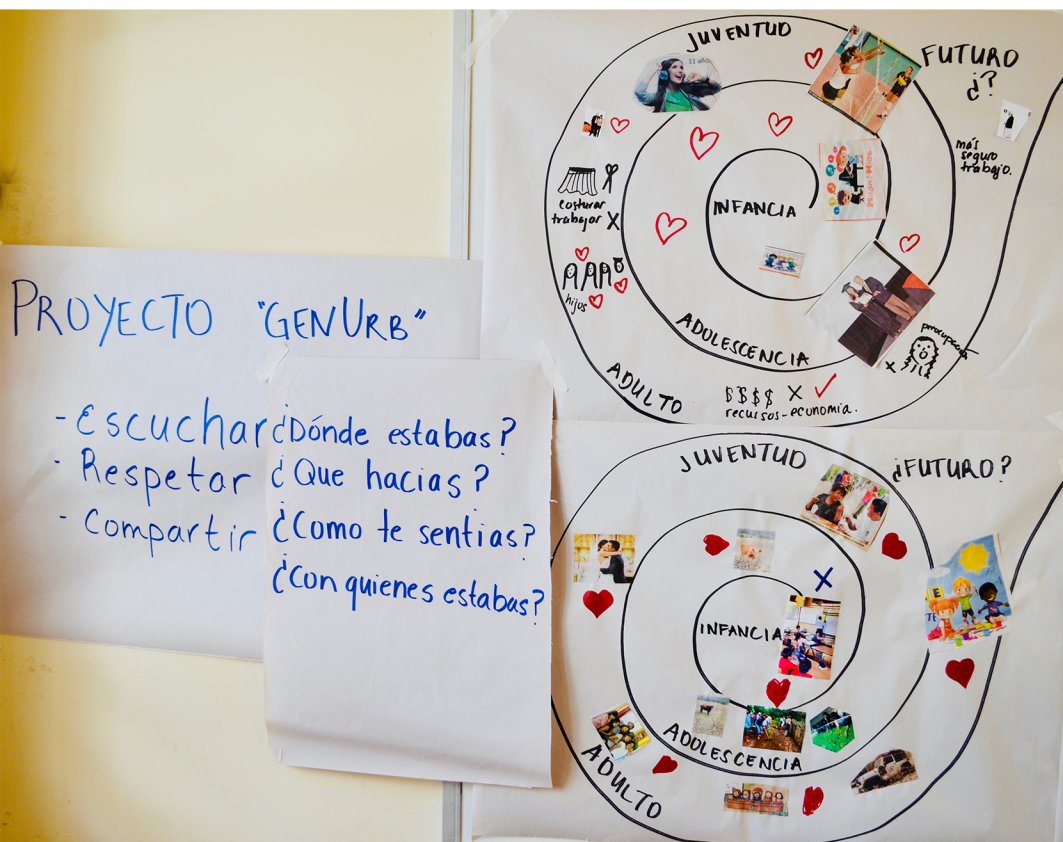 PROYECTO "GENURB"
- Escuchar
- Respetar
- Compartir
¿Dónde estabas?
¿Que hacias?
¿Como te sentias?
¿Con quienes estabas?
JUVENTUD
11 año
FUTURO
¿?
más
seguro
trabajo.
costurar
trabajar X
INFANCIA
hijos
ADOLESCENCIA
ADULTO
$$$$ X ✓
recursos-economia.
X
JUVENTUD
¿FUTURO?
X
INFANCIA
ADOLESCENCIA
ADULTO